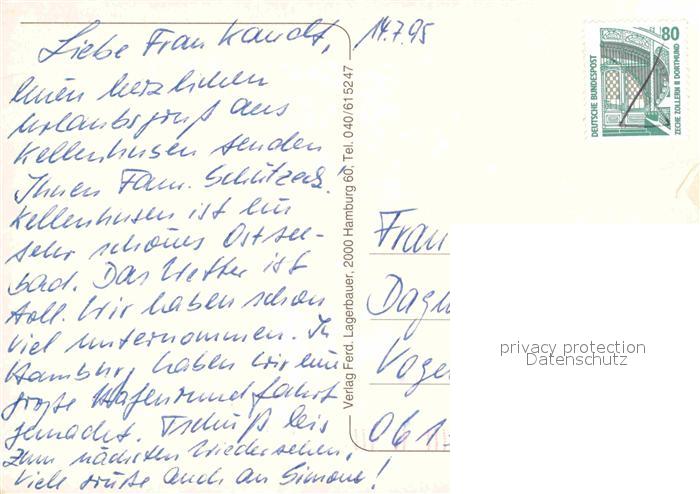 Liebe Frau Kandt,
14.7.95
einen herzlichen
Urlaubsgruß aus
Kellenhusen senden
Ihnen Fam. Schützeck.
Kellenhusen ist ein
sehr schönes Ostsee-
bad. Das Wetter ist
toll. Wir haben schon
viel unternommen. In
Hamburg haben wir eine
große Hafenrundfahrt
gemacht. Tschüß bis
zum nächsten Wiedersehen,
Viele Grüße auch an Simone!
Verlag Ferd. Lagerbauer, 2000 Hamburg 60, Tel. 040/615247
DEUTSCHE BUNDESPOST
80
ZECHE ZOLLERN II DORTMUND
Frau
Dagm
Voge
061
privacy protection
Datenschutz